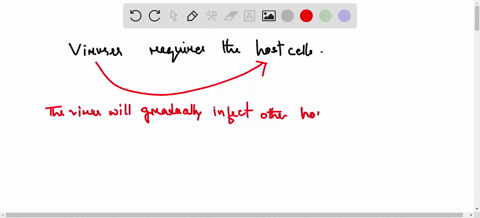 Viruses requires the host cells.
The virus will gradually infect other ho